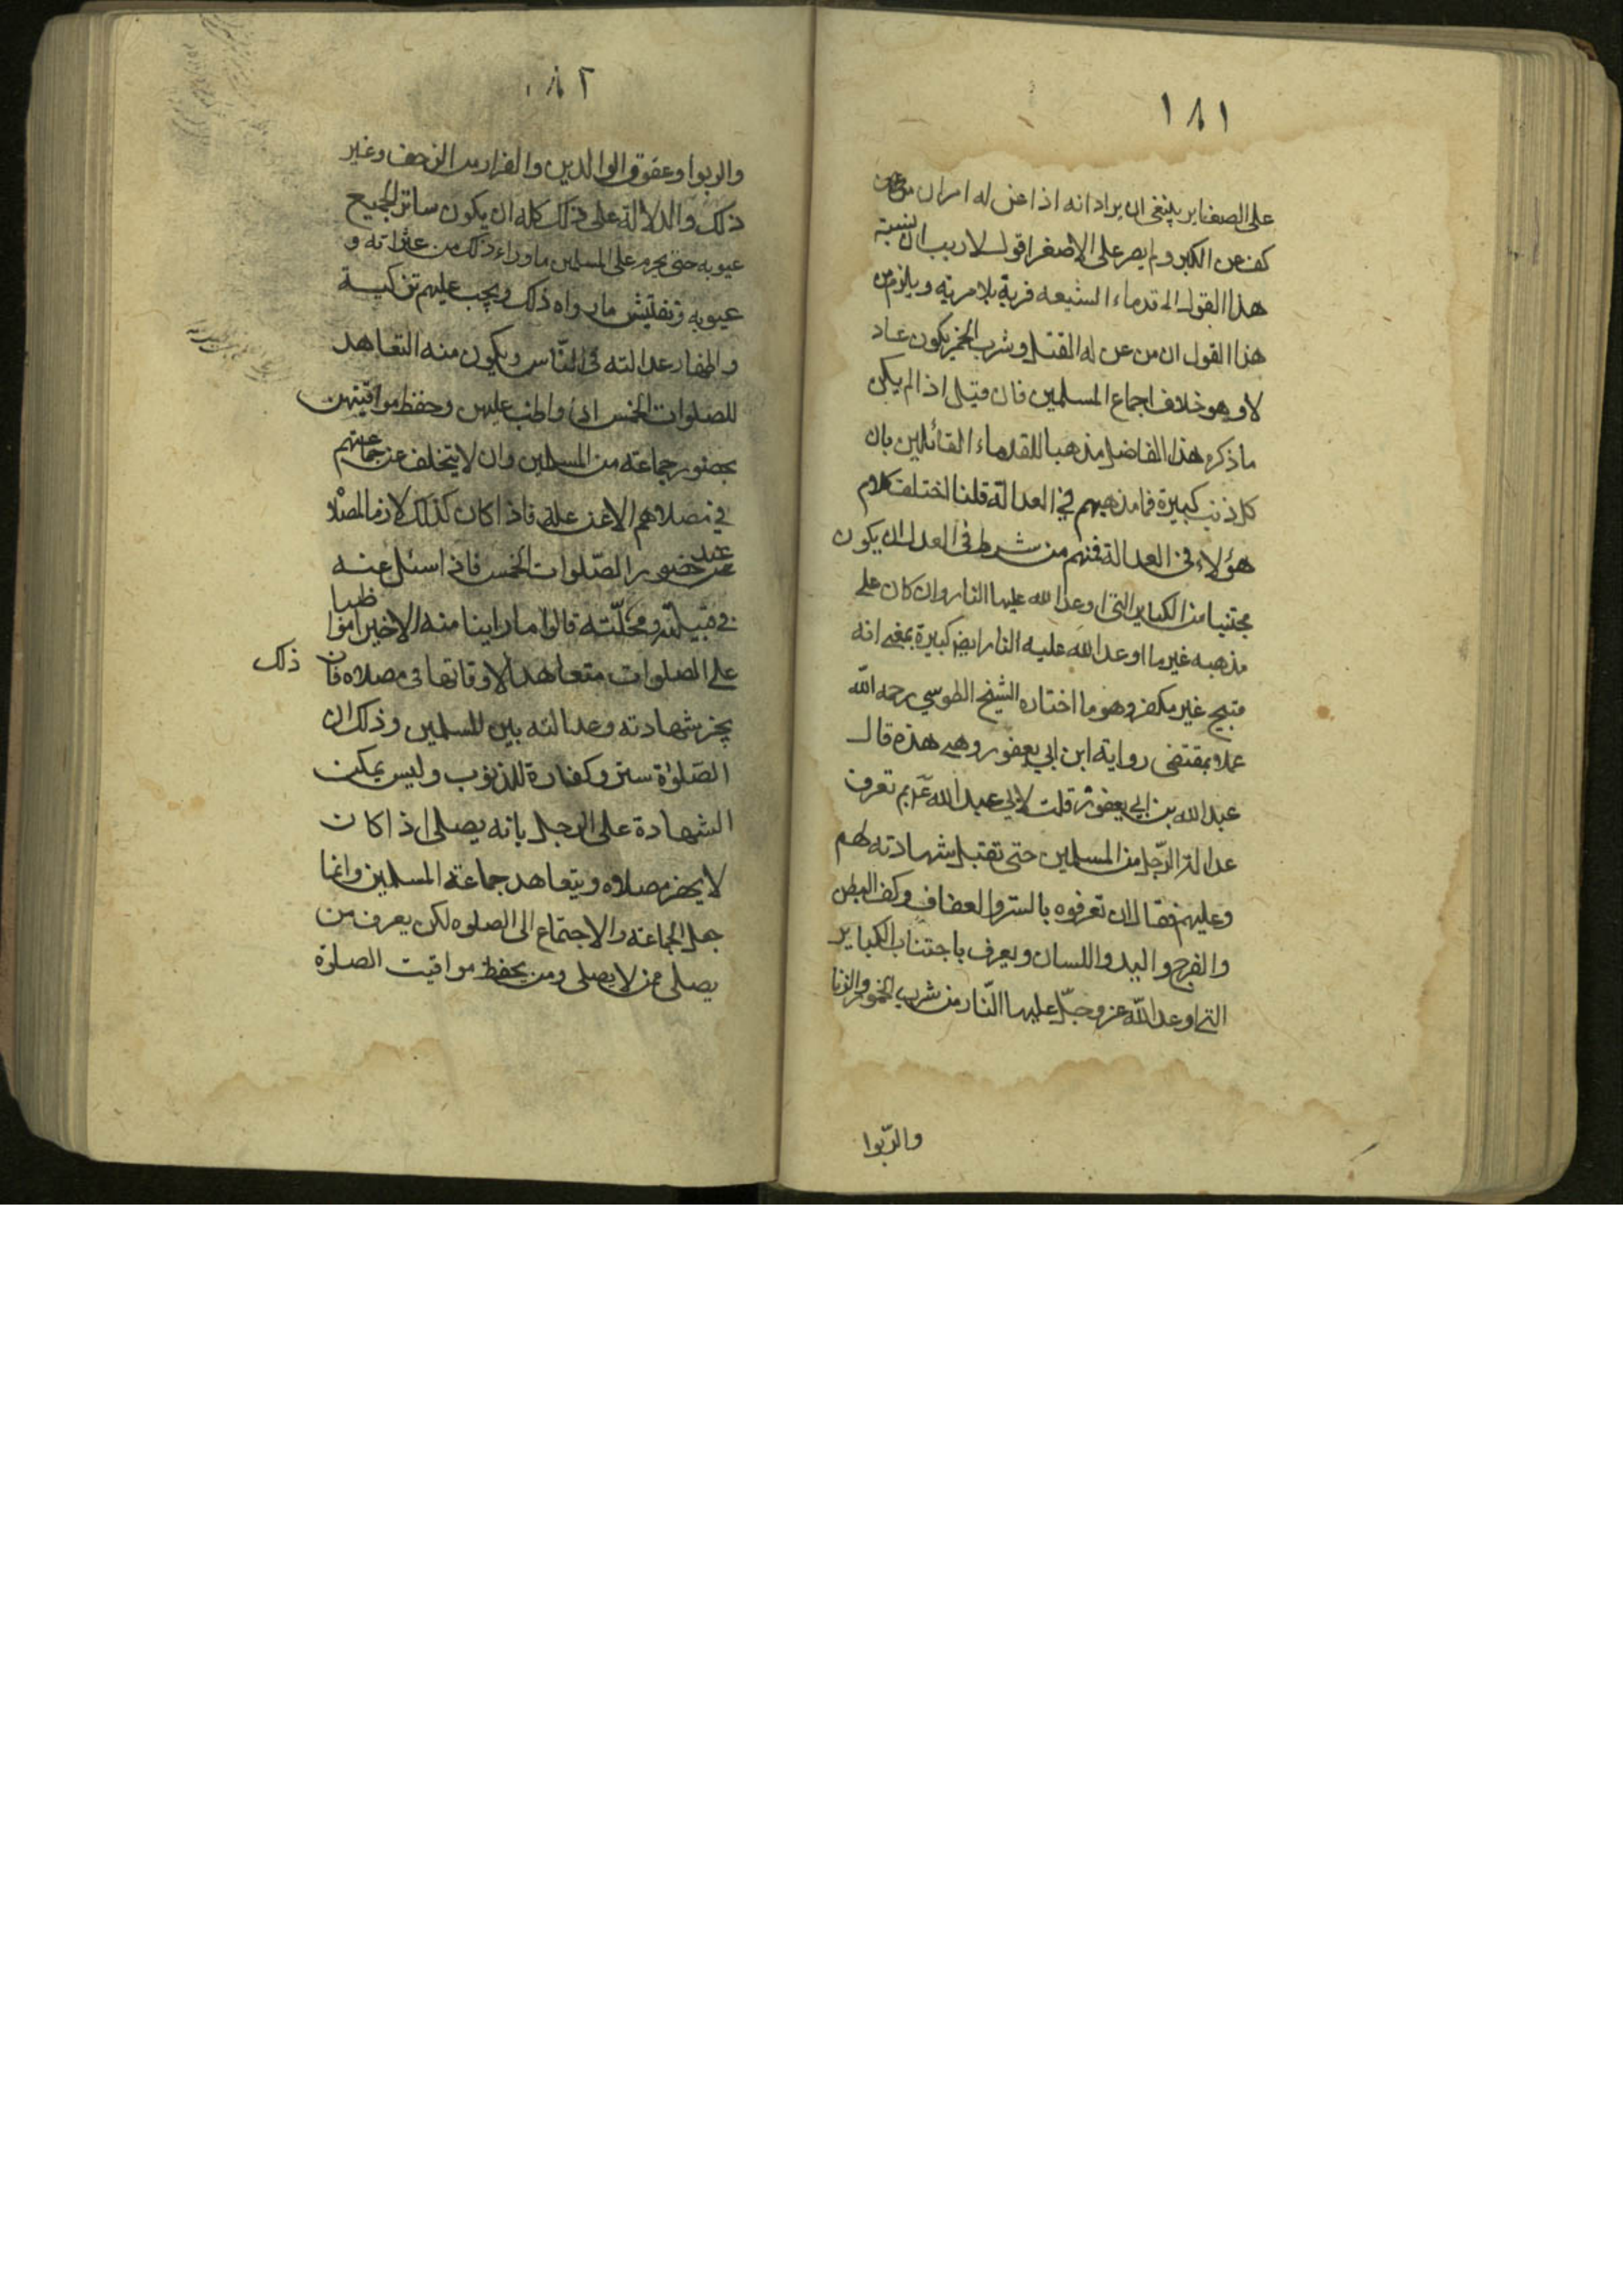 ١٨١
على الصغاير ينبغى ان يراد انه اذا عن له امران
كف عن الكبر ولم يصر على الاصغر اقول لا ريب ان نسبة
هذا القول الى قدماء الشيعه فرية بلا مرية ويلزم من
هذا القول ان من عن له القتل وشرب الخمر يكون عاد
لا وهو خلاف اجماع المسلمين فان قيل اذا لم يكن
ما ذكره هذا الفاضل مذهبا للقدماء القائلين بان
كل ذنب كبيرة فما مذهبهم في العدالة قلنا اختلف كلام
هؤلاء فى العدالة فمنهم من شرط فى العدل ان يكون
مجتنبا من الكباير التى اوعد الله عليها النار وان كان على
مذهبه غير ما اوعد الله عليه النار ايض كبيرة بمعنى انه
قبيح غير مكفر وهو ما اختاره الشيخ الطوسي رحمه الله
عملا بمقتضى رواية ابن ابي يعفور وهى هذه قال
عبد الله بن ابي يعفور قلت لابي عبد الله ع بم تعرف
عدالة الرّجل من المسلمين حتى تقبل شهادته لهم
وعليهم فقال ان تعرفوه بالستر والعفاف وكف البطن
والفرج واليد واللسان ويعرف باجتناب الكباير
التى اوعد اللّه عز وجلّ عليها النّار من شرب الخمور والزنا
والرّبوا
١٨٢
والربوا وعقوق الوالدين والفرار من الزحف وغير
ذلك والدلالة على ذلك كله ان يكون ساتر الجميع
عيوبه حتى يحرم على المسلمين ما وراء ذلك من عثراته و
عيوبه وتفتيش ما رواه ذلك ويجب عليهم تزكية
واظهار عدالته فى النّاس ويكون منه التعاهد
للصلوات الخمس اذا واظب عليهن وحفظ مواقيتهن
بحضور جماعة من المسلمين وان لا يتخلف عن جماعتهم
في مصلاهم الا من علة فاذا كان كذلك لازما لمصلا
عند حضور الصّلوات الخمس فاذا سئل عنه
في قبيلته ومحلّته قالوا ما راينا منه الا خيرا مواظبا
على الصلوات متعاهدا لاوقاتها فى مصلاه فان ذلك
يجز شهادته وعدالته بين المسلمين وذلك ان
الصّلوٰة ستر وكفارة للذنوب وليس يمكن
الشهادة على الرجل بانه يصلى اذا كان
لا يحضر مصلاه ويتعاهد جماعة المسلمين وانما
جعل الجماعة والاجتماع الى الصلوه لكن يعرف من
يصلى ممن لا يصلى ومن يحفظ مواقيت الصلوة